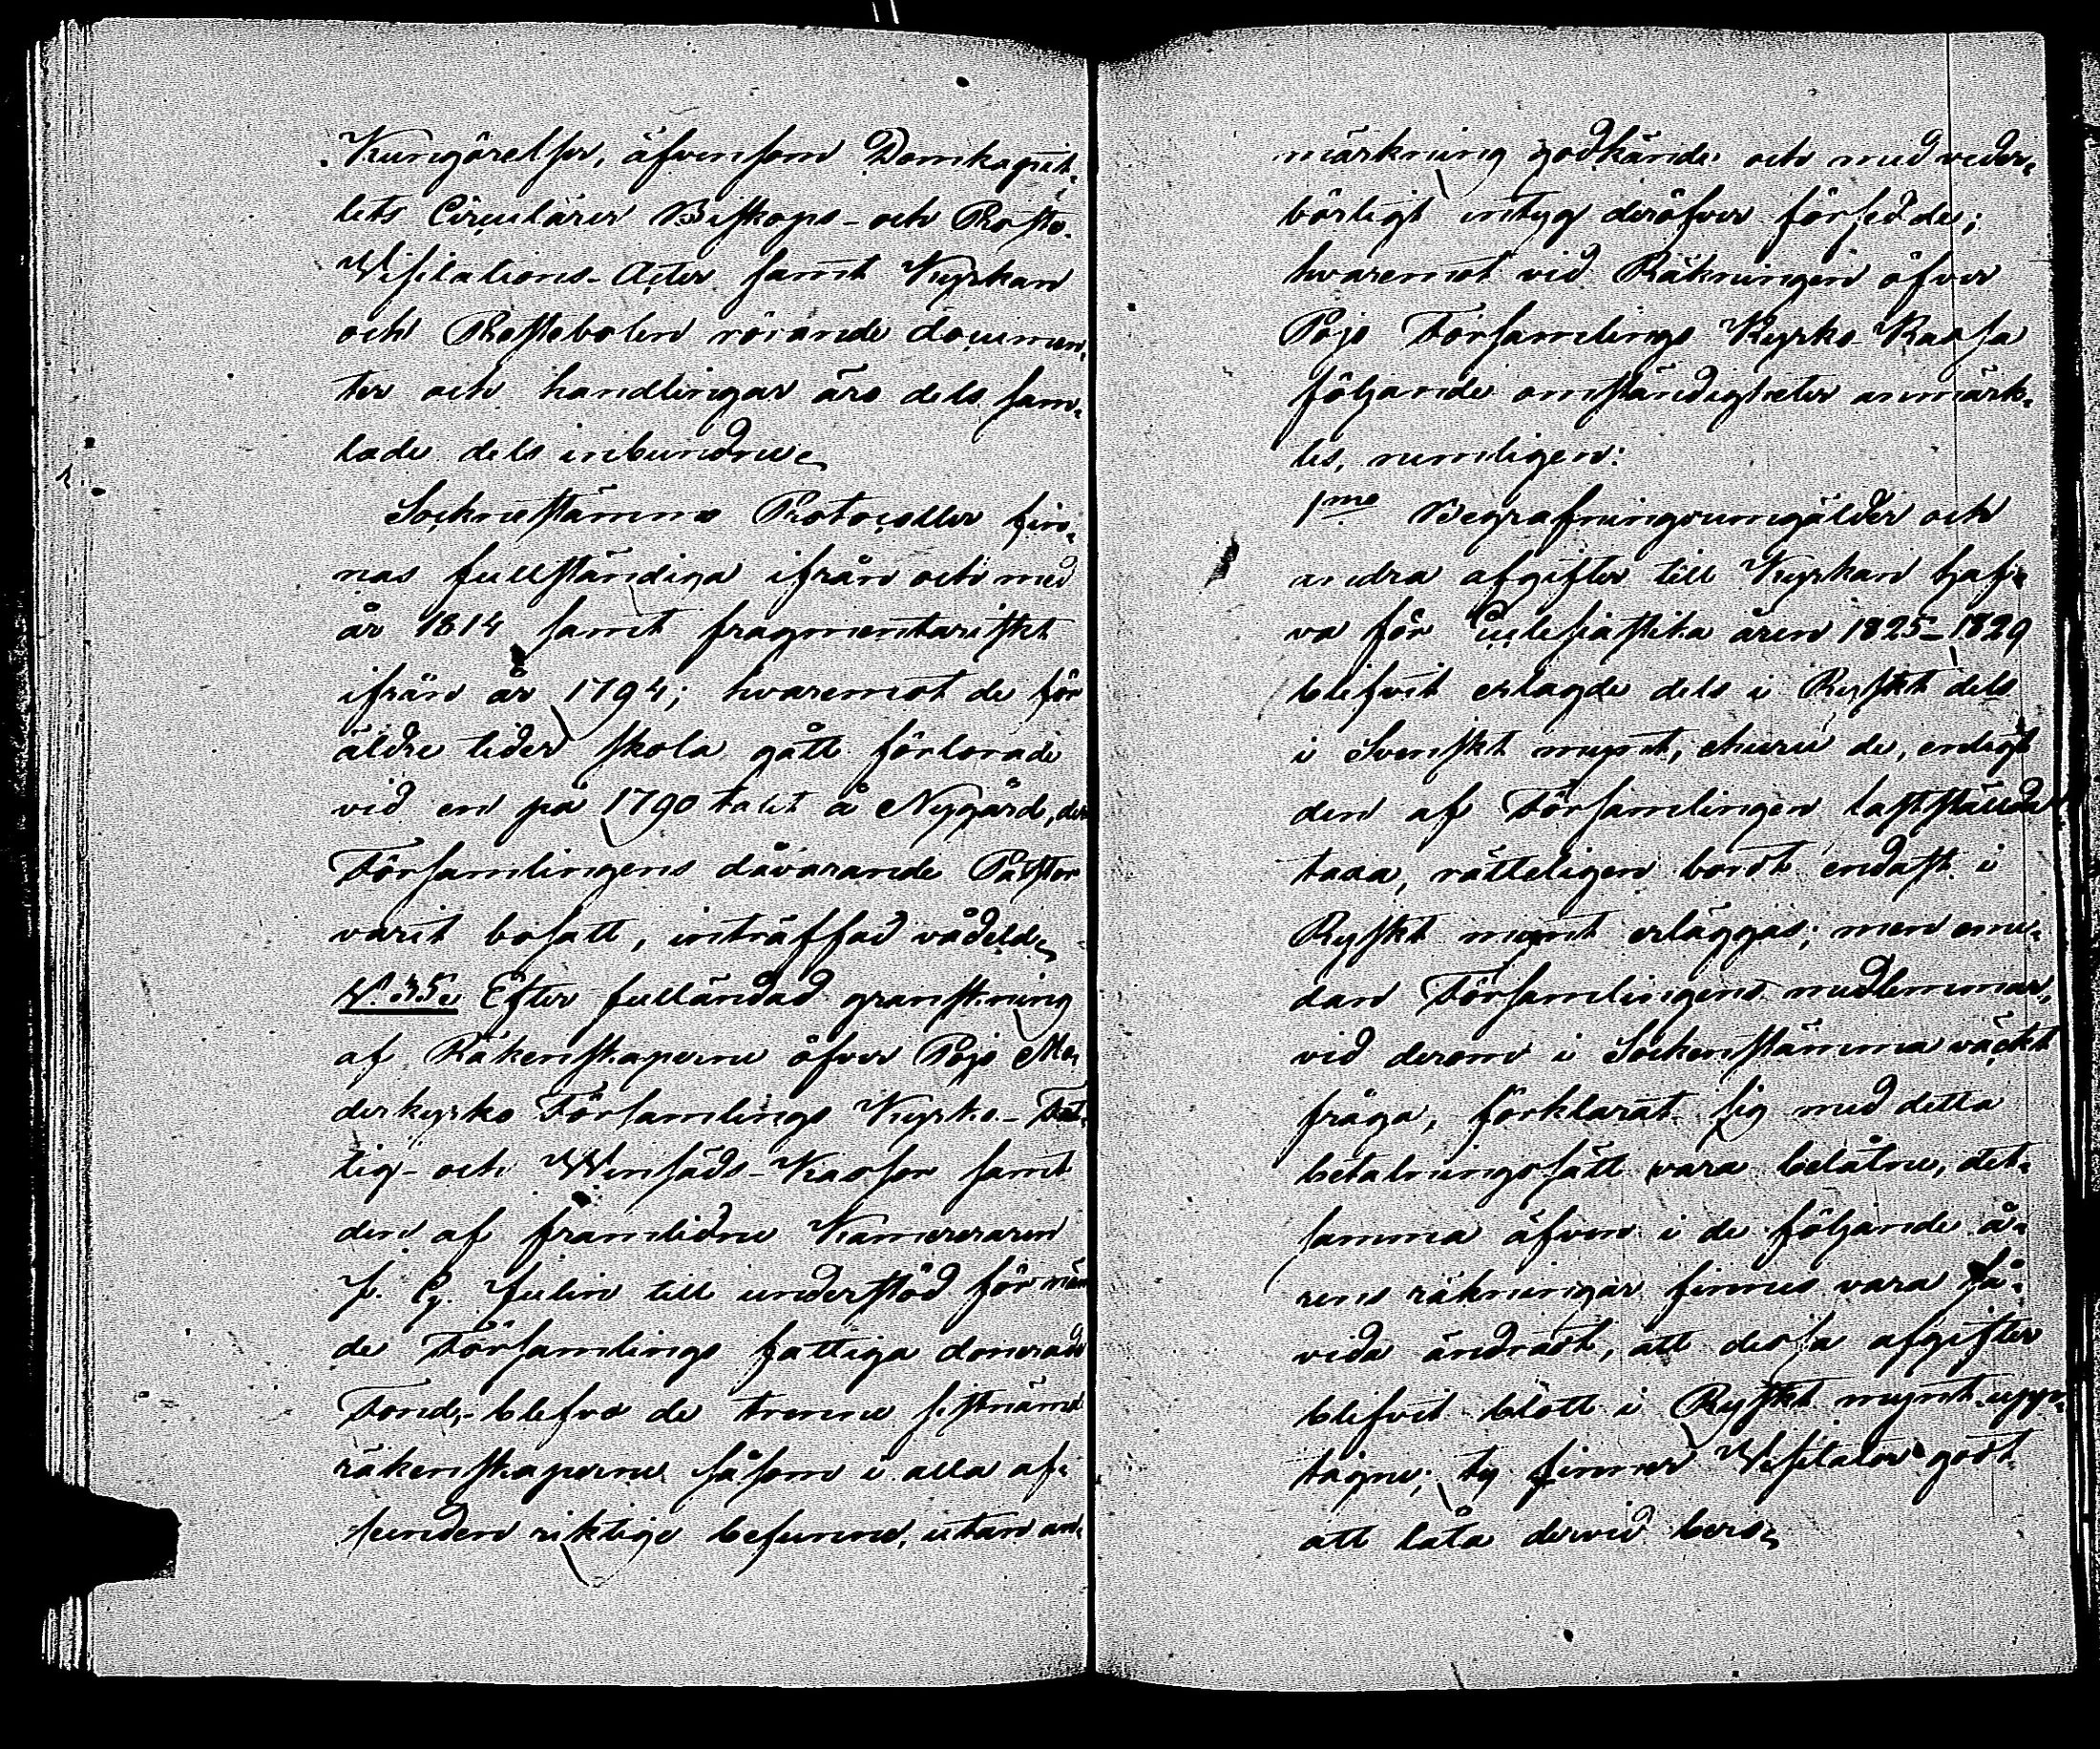 Kungörelser, äfvensom Domkapit¬
lets Circulärer Biskops- och Prosts¬
Visitations-Acter samt Kyrkan
och Prestebolen rörande documen¬
ter och handlingar äro dels sam¬
lade dels inbundne.
Sockenstämmo Protocoller fin¬
nas fullständiga ifrån och med
år 1814 samt fragmentariskt
ifrån år 1794; hvaremot de för
äldre tider skola gått förlorade
vid en på 1790 talet å Nygård, der
Församlingens dåvarande Pastor
varit bosatt, inträffad vådeld.
§. 35. Efter fulländad granskning
af Räkenskaperne öfver Pojo Mo¬
derkyrko Församlings Kyrko- Fat¬
tig- och Winsäds-Kassor samt
den af framlidne Kamereraren
J. Julin till understöd för näm
de Församlings fattiga donerade
Fond,- blefvo de trenne sistnämd
räkenskaperne såsom i alla af¬
seenden riktige befunne, utan an¬
märkning godkände och med veder¬
börligt intyg deröfver försedde;
hvaremot vid Räkningen öfver
Pojo Församlings Kyrko Kassa
följande omständigheter anmärk¬
tes, nemligen:
1mo Begrafningsumgälder och
andra afgifter till Kyrkan haf¬
va för Ecclesiastika åren 1825-1829
blifvit erlagde dels i Ryskt dels
i Svenskt mynt, ehuru de, enligt
den af Församlingen fastställda
taxa, rätteligen bordt endast i
Ryskt mynt erläggas; men eme¬
dan Församlingens medlemmar,
vid derom i Sockenstämma väckt
fråga, förklarat sig med detta
betalningssätt vara belåtne, det¬
samma äfven i de följande å¬
rens räkningar finnes vara så¬
vida ändradt, att dessa afgifter
blifvit blott i Ryskt mynt upp¬
tagne; ty finner Visitator godt
att låta dervid bero.